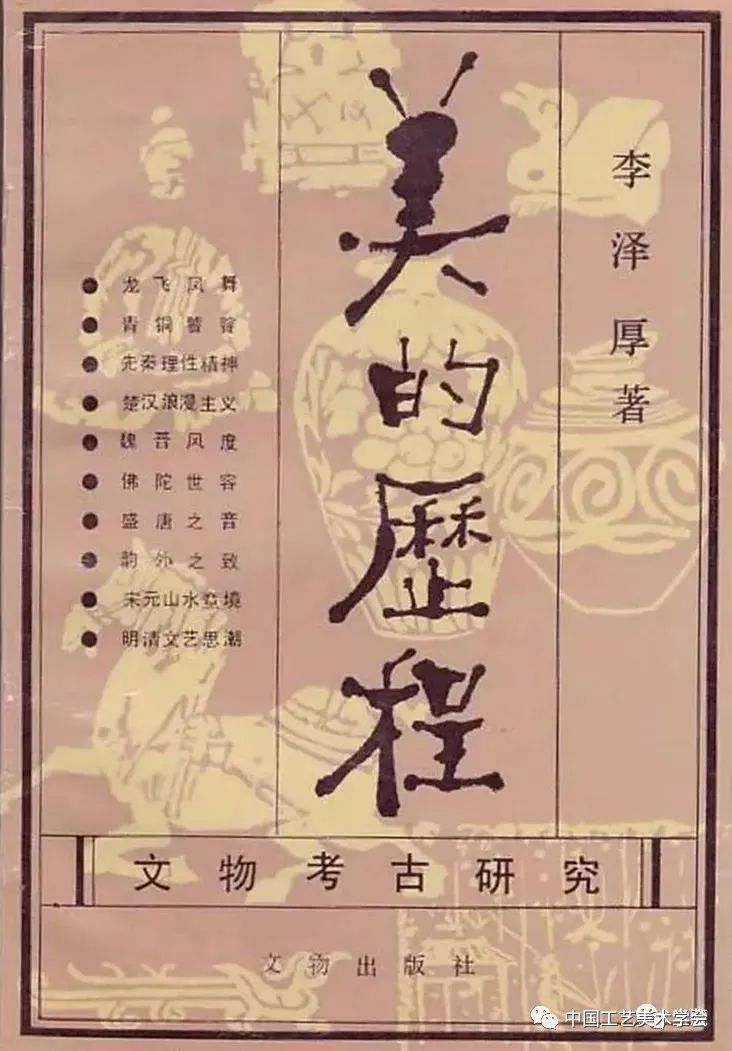 李泽厚著
美的歷程
● 龙飞凤舞
● 青铜饕餮
● 先秦理性精神
● 楚汉浪漫主义
● 魏晋风度
● 佛陀世容
● 盛唐之音
● 韵外之致
● 宋元山水意境
● 明清文艺思潮
文物考古研究
文物出版社
中国工艺美术学会